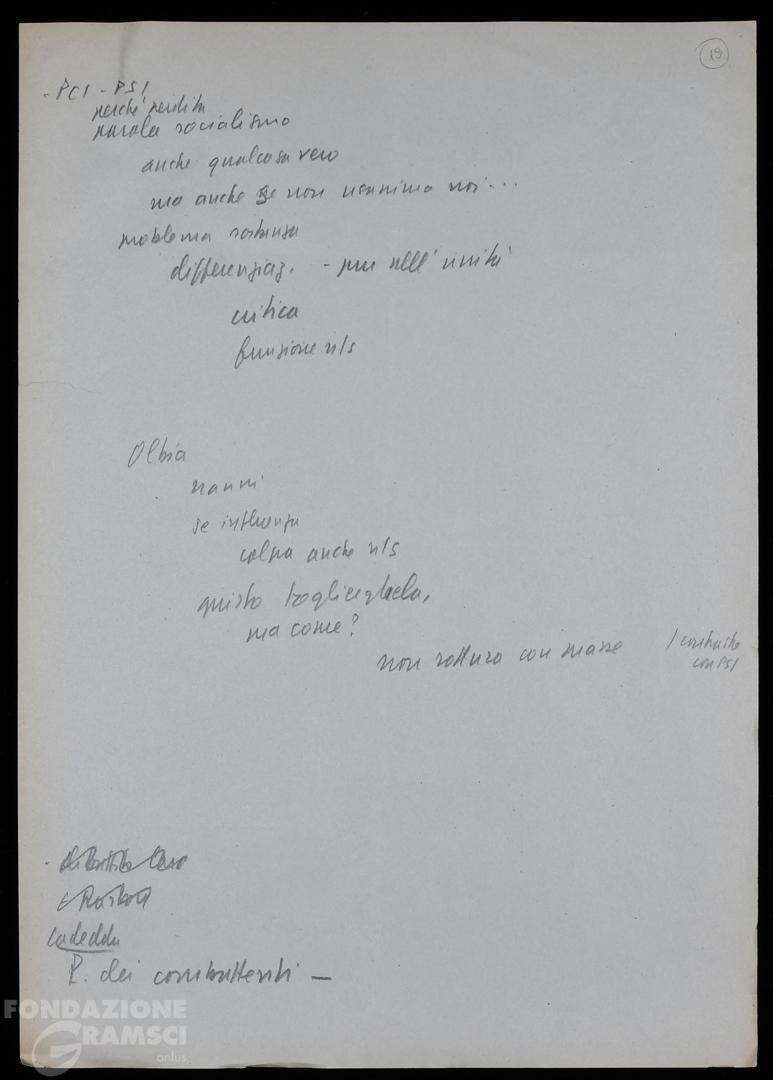 19
- PCI - PSI
perché perdita
parola socialismo
anche qualcosa vero
ma anche se non venissimo noi...
problema sostanza
differenziaz. - pur nell'unità
critica
funzione n/s
Olbia
nanni
se influenza
colpa anche n/s
giusto togliergliela,
ma come?
non rottura con masse / contrasto
con PSI
Cadeddu
P. dei combattenti —
FONDAZIONE
GRAMSCI
onlus